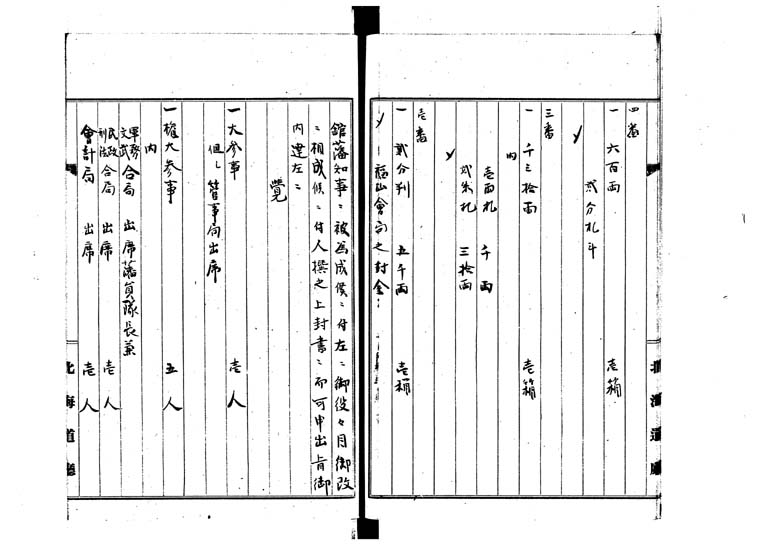 四番
一 六百両 壱箱
弐分札斗
三番
一 千三拾両 壱箱
内
壱両札 千両
弐朱札 三拾両
壱番
一 弐分判 五千両 壱桶
福山會
之封金
北海道廳
館藩知事ニ被為成候ニ付左ニ御役々目御改
ニ相成候ニ付人撰之上封書ニ而可申出旨御
内達左ニ
覺
一 大参事 壱人
但し 管事局出席
一 權大参事 五人
内
軍務
文武 合局 出席藩員隊長兼
民政
刑法 合局 出席 壱人
會計局 出席 壱人
北海道廳